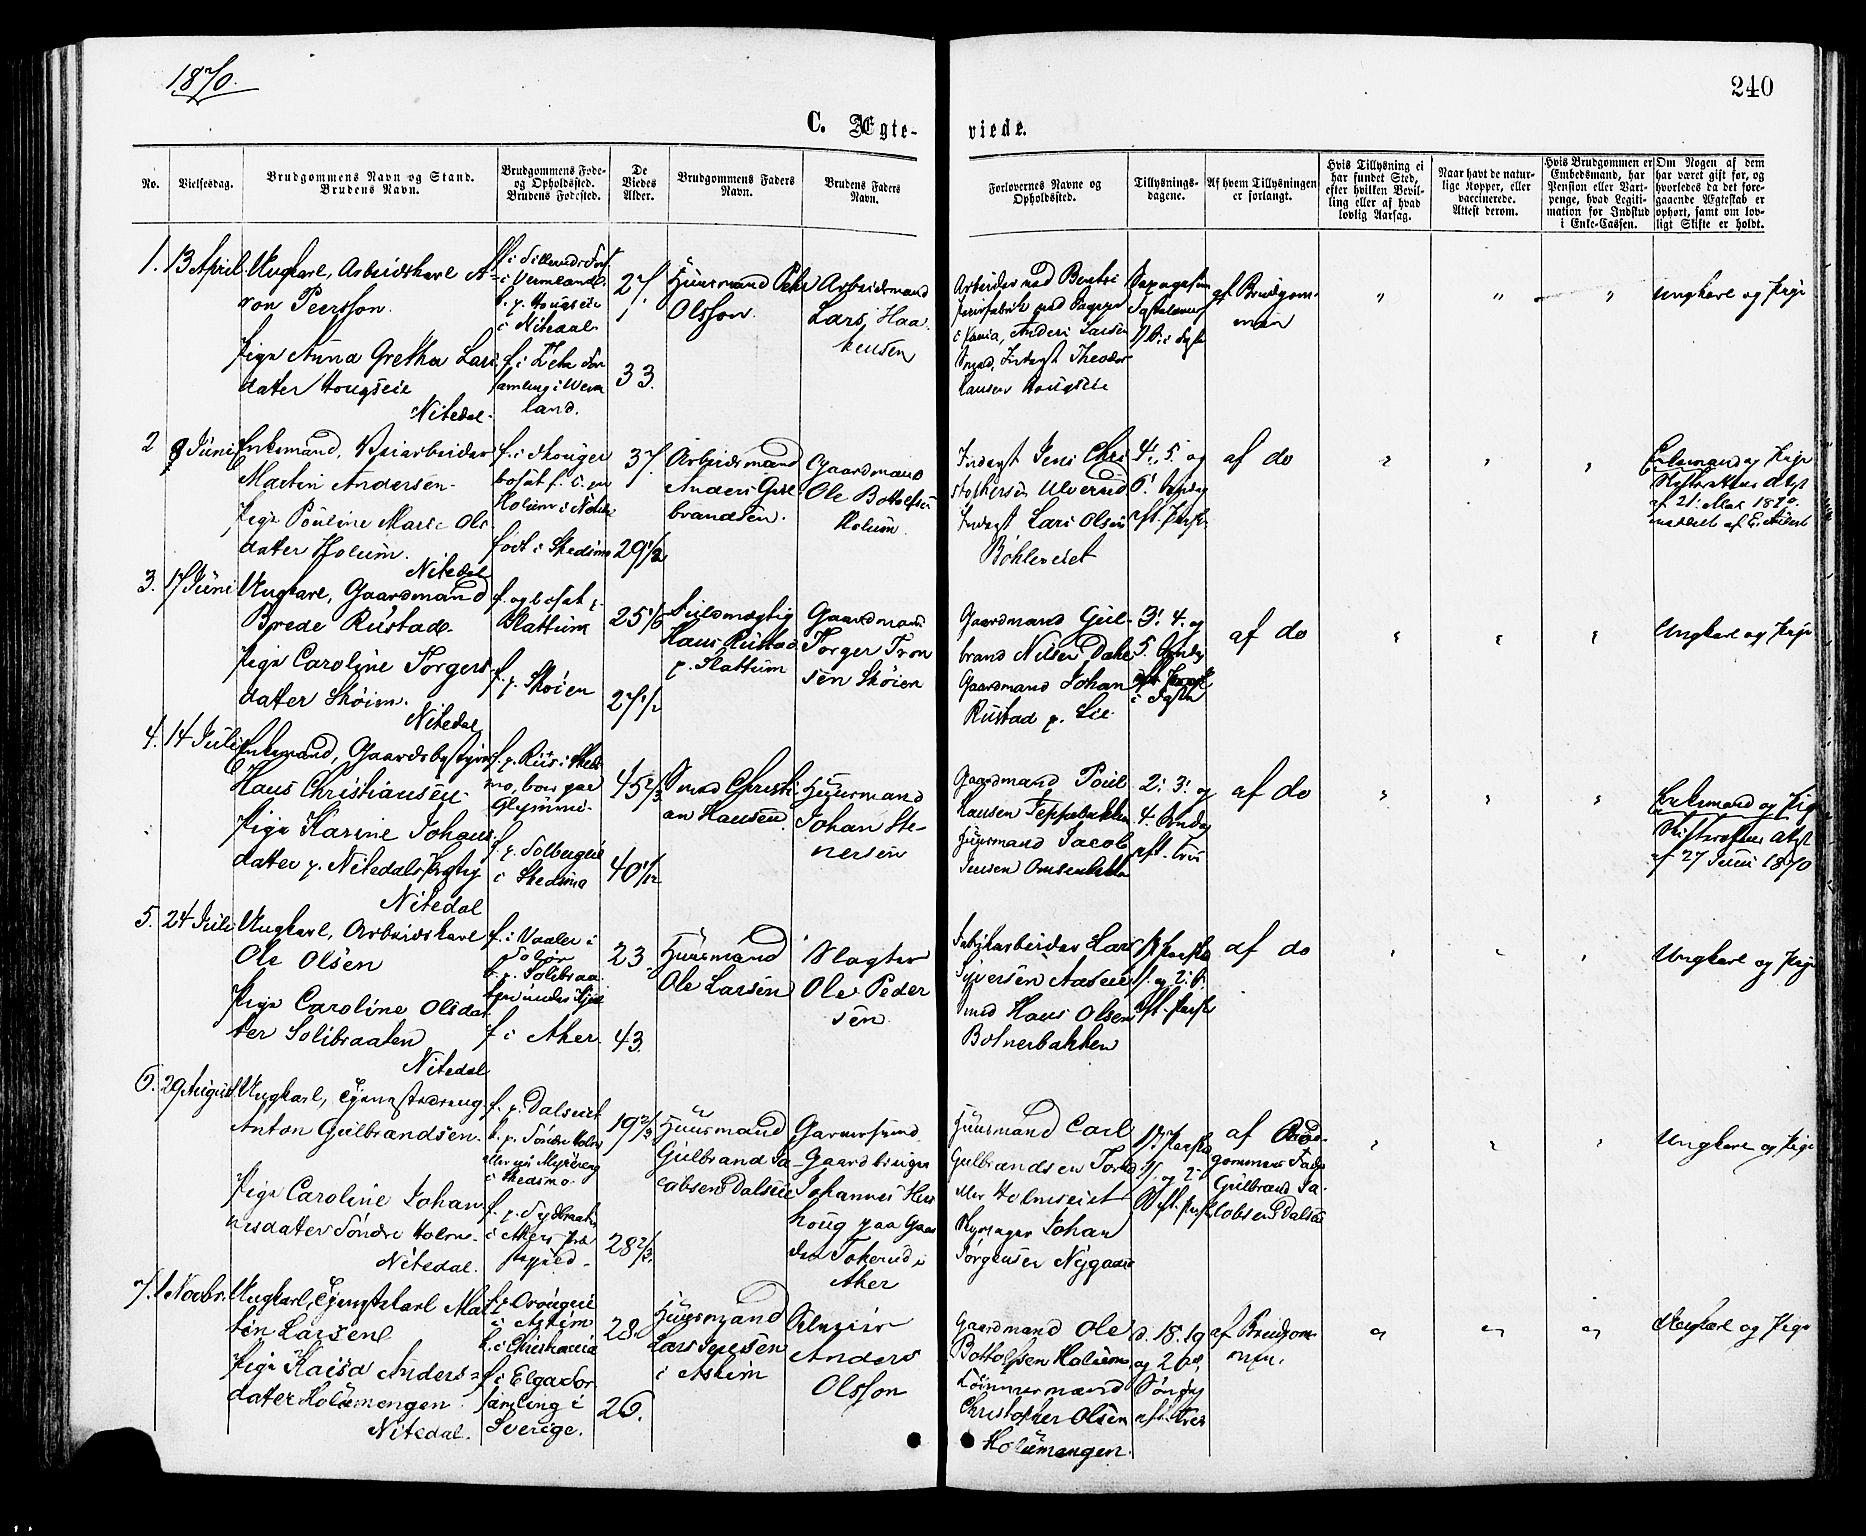 1870.
240
C. Ægte-
viede.
No.
Vielsesdag.
Brudgommens Navn og Stand.
Brudens Navn.
Brudgommens Føde-
og Opholdssted.
Brudens Fødested.
De
Viedes
Alder.
Brudgommens Faders
Navn.
Brudens Faders
Navn.
Forlovernes Navne og
Opholdssted.
Tillysnings-
dagene.
Af hvem Tillysningen
er forlangt.
Hvis Tillysning ei
har fundet Sted,
efter hvilken Bevil-
ling eller af hvad
lovlig Aarsag.
Naar havt de natur-
lige Kopper, eller
vaccinerede.
Attest derom.
Hvis Brudgommen er
Embedsmand, har
Pension eller Vart-
penge, hvad Legiti-
mation for Indskud
i Enke-Cassen.
Om Nogen af dem
har været gift før, og
hvorledes da det fore-
gaaende Ægteskab er
ophørt, samt om lov-
ligt Skifte er holdt.
1. 13 April
Ungkarl, Arbeidskarl A-
ron Persson.
Pige Anna Gretha Lars
datter Hougseie
Nitedal.
i Vermland
i Nitedal
land.
27
33.
Huusmand Peter
Olsson.
Arbeidsmand
Lars Haa
kensen
Anders Larsen
Theodor
Hansen Hougseie
af Brudgom-
men
Ungkarl og Pige
2 8 Juni
Enkemand, Veiarbeider
Martin Andersen.
Pige Pouline Marie Ols
datter Holum.
Nitedal
f. i Skouger
bosat
Holum i Nitedal
født i Skedsmo
37.
29 1/2
Arbeidsmand
Anders Gul
brandsen.
Gaardmand
Ole Bottolfsen
Holum.
Inderst Jens Chri
stophersen Ulverud
Inderst Lars Olsen
Böhlereiet
4, 5. og
6. Søndag
eft. Paaske
af do
Enkemand og Pige
Skifterettens Attest
af 21. Mai 1870
3. 17 Juni
Ungkarl, Gaardmand
Brede Rustad.
Pige Caroline Torgers
datter Skøien.
Nitedal
f. og bosat p.
Slattum
f. p. Skøien
25 1/6
27 1/2
Fuldmægtig
Hans Rustad
p. Slattum
Gaardmand
Torger Tron
sen Skøien
Gaardmand Gul-
brand Nilsen Dahl
Gaardmand Johan
Rustad p. Lie
3. 4. og
5. Søndag
i Fasten
af do
Ungkarl og Pige
4. 14 Juli
Enkemand, Gaardsbestyrer
Hans Christiansen
Pige Karine Johans
datter p. Nitedals Præstg
Nitedal
Glymmi-
f. p. Solbergeie
i Skedsmo
45 2/3
40 1/12
Smed Christi
an Hansen
Huusmand
Johan Ste-
nersen
Gaardmand Poul
Hansen Teppabakken
Huusmand Jacob
Jensen
2. 3. og
4. Søndag
eft. Tref
af do
Enkemand og Pige
Skifterettens Attest
af 27 Juni 1870
5. 24 Juli
Ungkarl, Arbeidskarl
Ole Olsen
Pige Caroline Olsdat
ter Solibraaten
Nitedal
f. i Vaaler i
Solør
f. i Aker
23
43
Huusmand
Ole Larsen
Slagter
Ole Peder
sen
Fabrikarbeider Lars
Syversen Aaseie
Smed Hans Olsen
Botnerbakken
af do
Ungkarl og Pige
6. 29 August
Ungkarl, Tjenestedreng
Anton Gulbrandsen.
Pige Caroline Johan
nesdatter Søndre Holm-
Nitedal.
f. p. Dalseiet
i Skedsmo
i Akers Præ
stegjeld.
19 2/3
28 2/3
Huusmand
Gulbrand Ja
cobsen Dalseie
Garversvend
Gaardbruger
Johannes
houg paa Gaar
den Tokerud i
Aker
Huusmand Carl
Gulbrandsen
eller Holmseiet
Johan
Jørgensen Nygaard
af Brud-
gommens Fader
Gulbrand Ja-
cobsen Dalseie
Ungkarl og Pige
7. 1 Novbr.
Ungkarl, Tjenstekarl Mar
tin Larsen
Pige Kaisa Anders-
datter Holumengen
Nitedal.
i Askim
b. i Christiania
f. i Elga For
samling i
Sverige.
28
26.
Huusmand
Lars Jensen
i Askim
Anders
Olsson
Gaardmand Ole
Bottolfsen Holum
Tømmermand
Christopher Olsen
Holumengen.
d. 18. 19
og 20de
Søndag
eft. Tref
af Brudgom
men.
Ungkarl og Pige